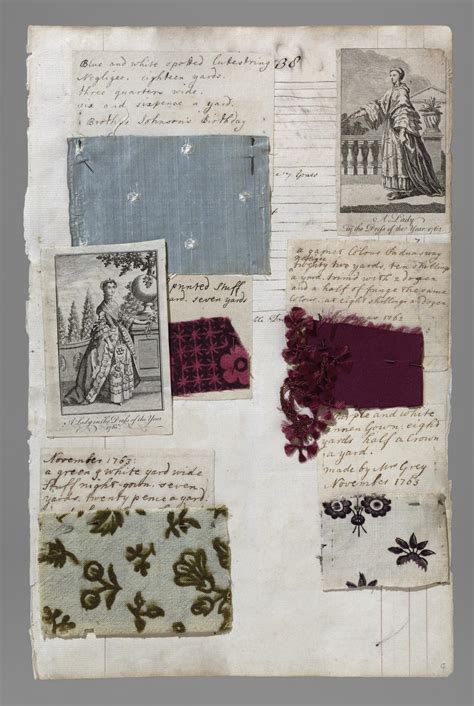 Blue and white spotted lutestring
Negligee. eighteen yards.
three quarters wide.
six and sixpence a yard.
Brother Johnson's Birthday
38
A Lady
in the Dress of the Year 1762
a garnet Colour
twenty two yards, ten shillings
a yard. trim'd with 2 dozen
and a half of fringe the same
colour. at eight shillings a dozen
1763
printed Stuff
yard. seven yards
A Lady in the Dress of the Year
purple and white
linnen Gown: eight
yards half a Crown
a yard.
made by Mrs Grey
November 1763
November 1763.
a green & white yard wide
Stuff night-gown. seven
yards. twenty pence a yard.